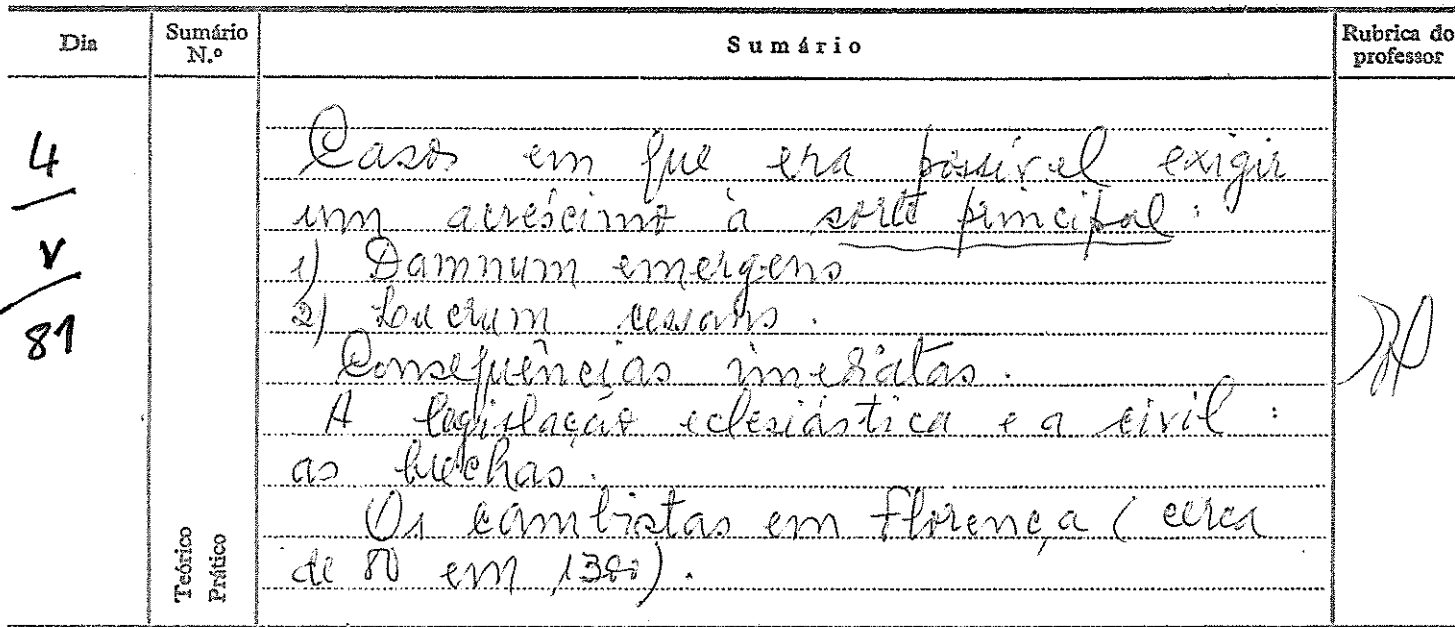 Dia
Sumário N.º
Sumário
Rubrica do professor
4
V
81
Casos em que era possível exigir
um acréscimo à sorte principal:
1) Damnum emergens
2) Lucrum cessans.
Consequências imediatas.
A legislação eclesiástica e a civil:
as brechas.
Os cambistas em Florença (cerca
de 80 em 1380).
Teórico
Prático